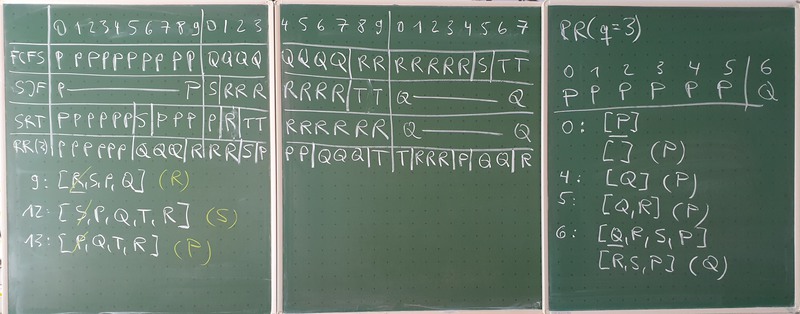 0 1 2 3 4 5 6 7 8 9 0 1 2 3
FCFS P P P P P P P P P P Q Q Q Q
SJF P P S R R R
SRT P P P P P P S P P P P R T T
RR(3) P P P P P P Q Q Q R R R S P
9: [R,S,P,Q] (R)
12: [S,P,Q,T,R] (S)
13: [P,Q,T,R] (P)
4 5 6 7 8 9 0 1 2 3 4 5 6 7
Q Q Q Q R R R R R R R S T T
R R R R T T Q Q
R R R R R R Q Q
P P Q Q Q T T R R R P Q Q R
RR(q=3)
0 1 2 3 4 5 6
P P P P P P Q
0: [P]
[] (P)
4: [Q] (P)
5: [Q,R] (P)
6: [Q,R,S,P]
[R,S,P] (Q)